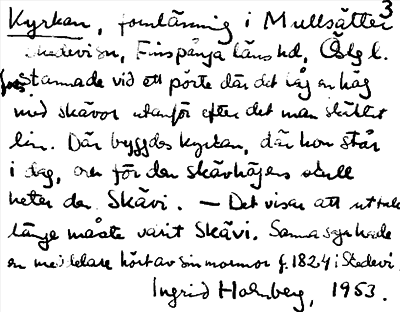 3
Kyrkan, fornlämning i Mullsätter
Skedevi sn, Finspånga läns hd, Östg l.
stannade vid ett pörte där det låg en hög
med skävor utanför efter det man skäktat
lin. Där byggdes kyrkan, där hon står
i dag, och för den skävhögens skull
heter den Skävi. — Det visar att uttalet
länge måste varit Skävi. Samma sägn hade
en meddelare hört av sin mormor f. 1824 i Skedevi.
Ingrid Holmberg, 1953.